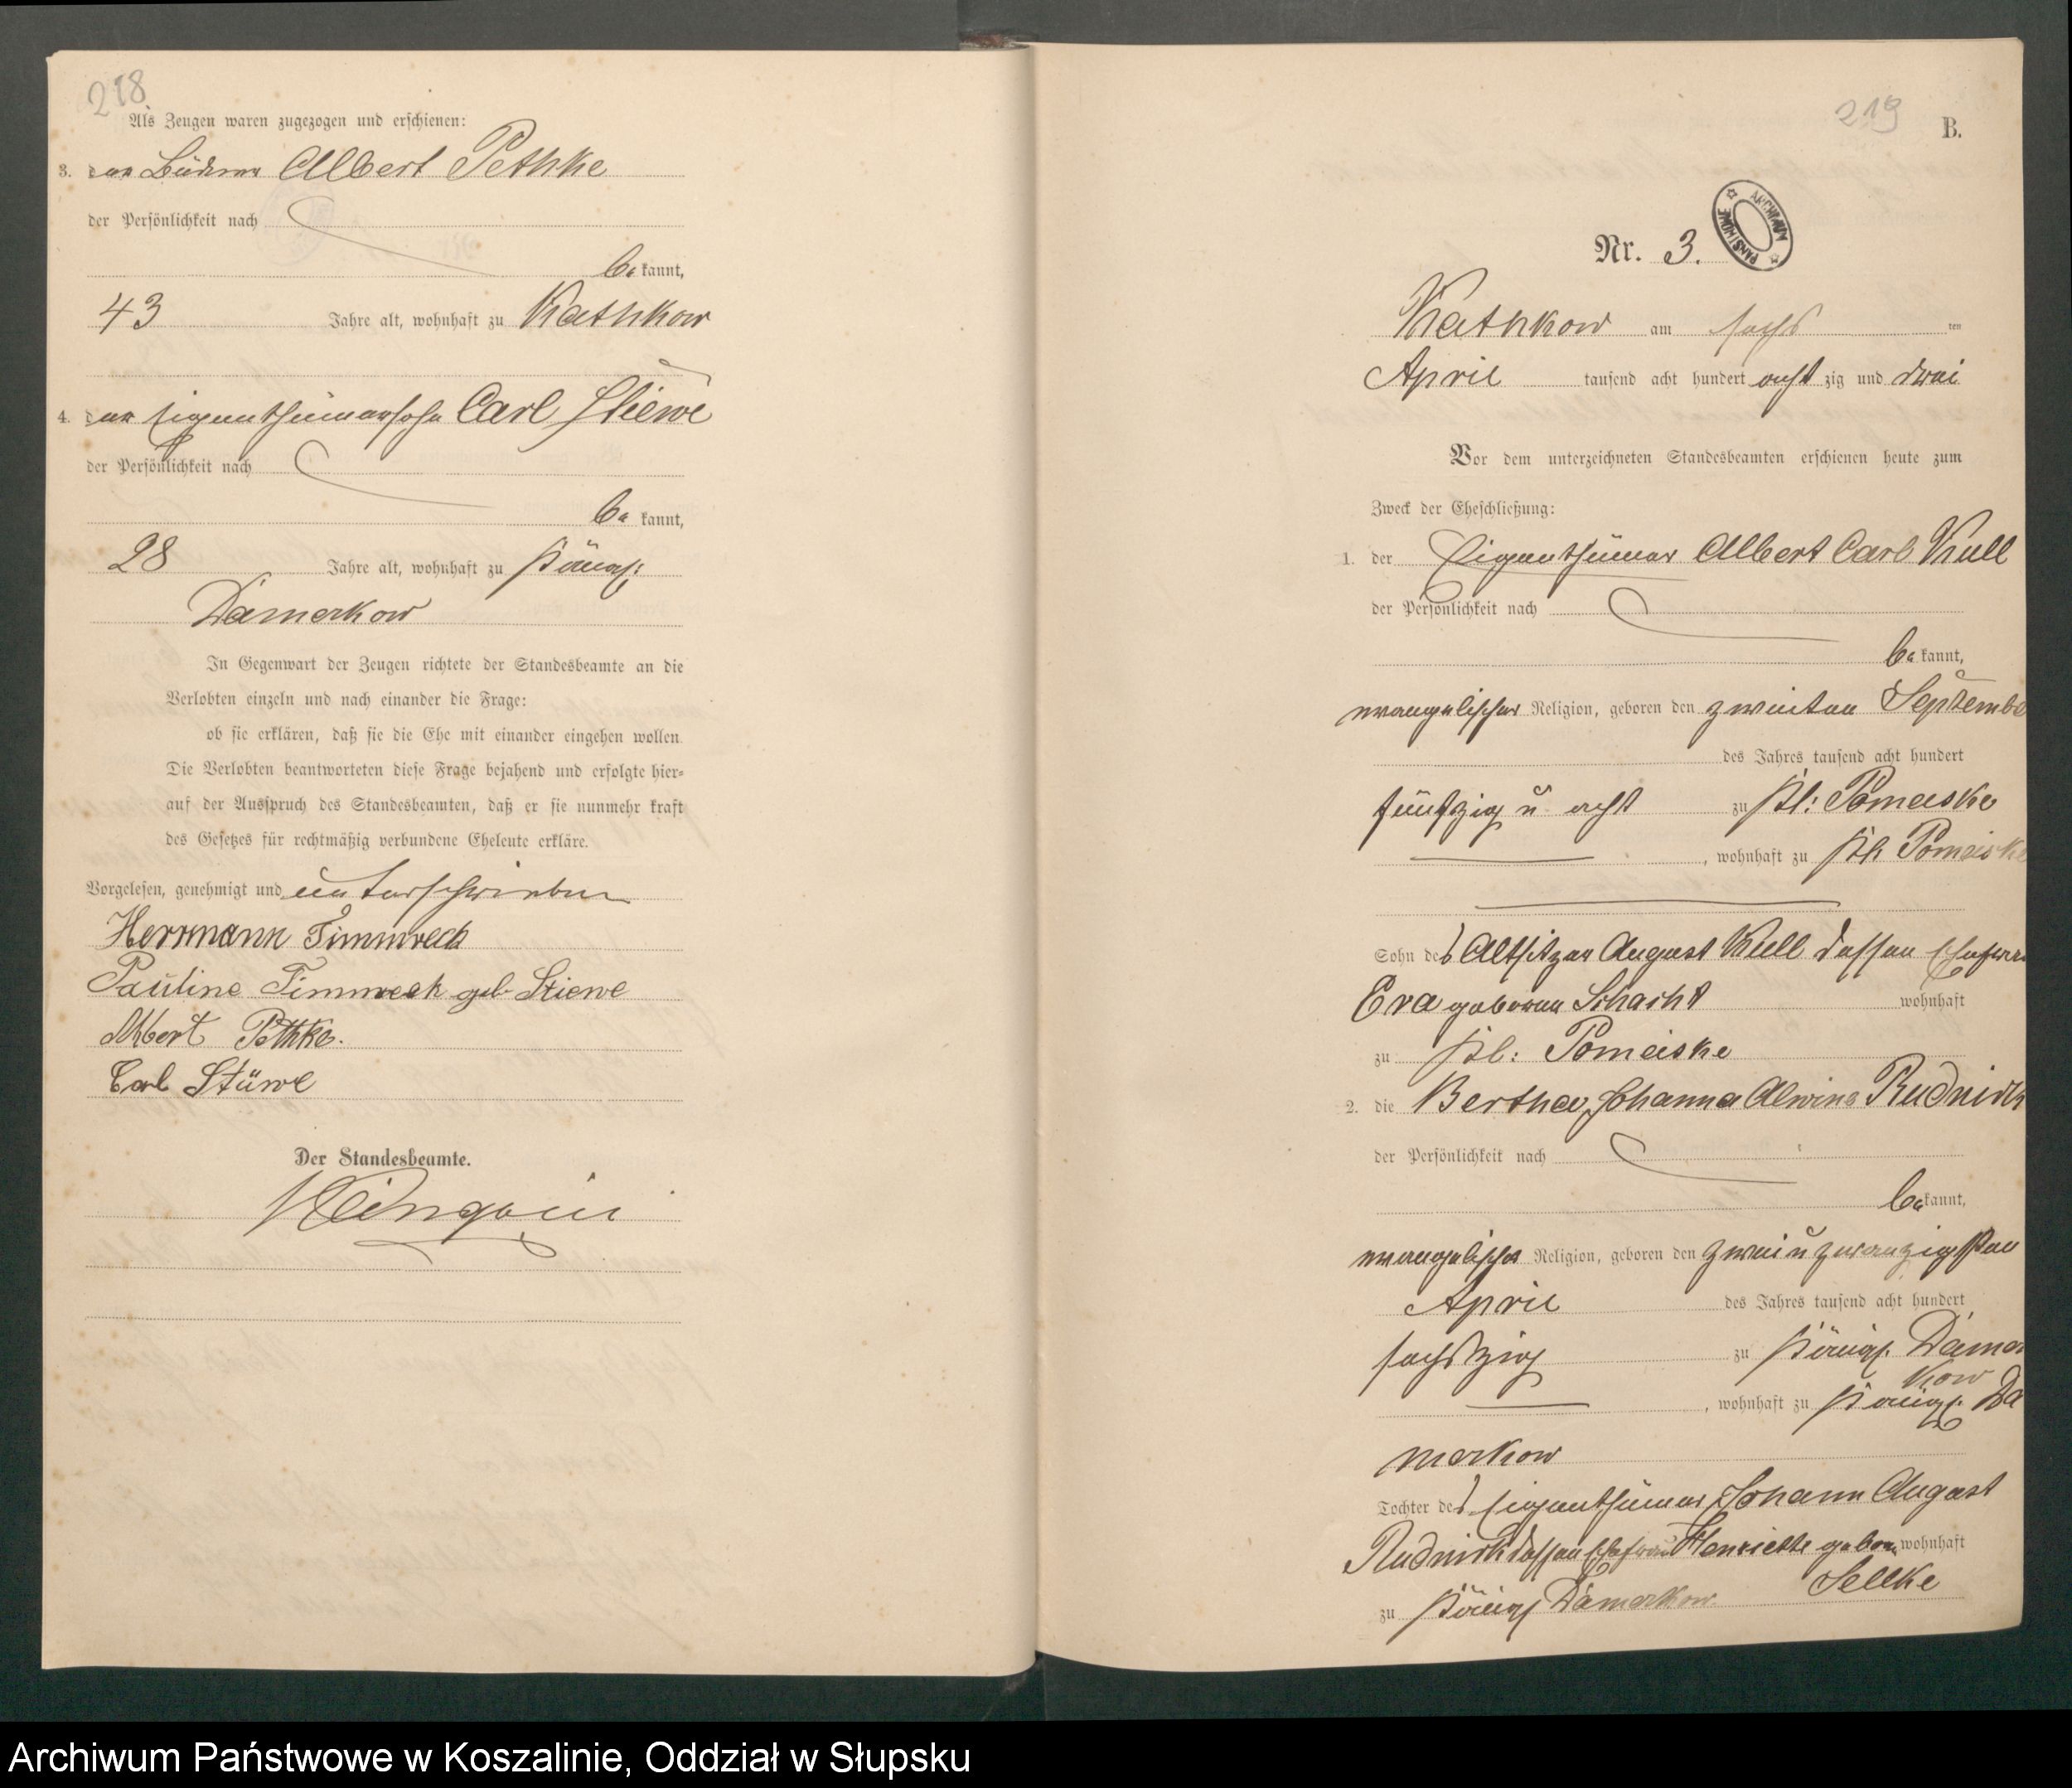 218
Als Zeugen waren zugezogen und erschienen:
3. der Büdner Albert Pethke
der Persönlichkeit nach
bekannt,
43 Jahre alt, wohnhaft zu Kathkow
4. der Eigenthümersohn Carl Stiewe
der Persönlichkeit nach
bekannt,
28 Jahre alt, wohnhaft zu Königl:
Damerkow
In Gegenwart der Zeugen richtete der Standesbeamte an die
Verlobten einzeln und nach einander die Frage:
ob sie erklären, daß sie die Ehe mit einander eingehen wollen.
Die Verlobten beantworteten diese Frage bejahend und erfolgte hier=
auf der Ausspruch des Standesbeamten, daß er sie nunmehr kraft
des Gesetzes für rechtmäßig verbundene Eheleute erkläre.
Vorgelesen, genehmigt und unterschrieben
Herrmann Timmreck
Pauline Timmreck geb Stiewe
Albert Pethke.
Carl Stüwe
Der Standesbeamte.
219
B.
ARCHIWUM PAŃSTWOWE
Nr. 3.
Kathkow am sechs ten
April tausend acht hundert acht zig und drei
Vor dem unterzeichneten Standesbeamten erschienen heute zum
Zweck der Eheschließung:
1. der Eigenthümer Albert Carl Kull
der Persönlichkeit nach
bekannt,
evangelischer Religion, geboren den zweiten Septembe
des Jahres tausend acht hundert
fünfzig u acht zu Kl: Pomeiske
, wohnhaft zu Kl: Pomeiske
Sohn des Altsitzer August Kull dessen Ehefrau
Eva geboren Schacht wohnhaft
zu Kl: Pomeiske
2. die Bertha Johanna Alwine Rudnick
der Persönlichkeit nach
bekannt,
evangelischer Religion, geboren den zwei u zwanzigsten
April des Jahres tausend acht hundert
sechszig zu Königl. Damer
kow
, wohnhaft zu Königl. Da
merkow
Tochter des Eigenthümer Johann August
Rudnick dessen Ehefrau Henriette geboren wohnhaft
Sellke
zu Königl Damerkow
Archiwum Państwowe w Koszalinie, Oddział w Słupsku